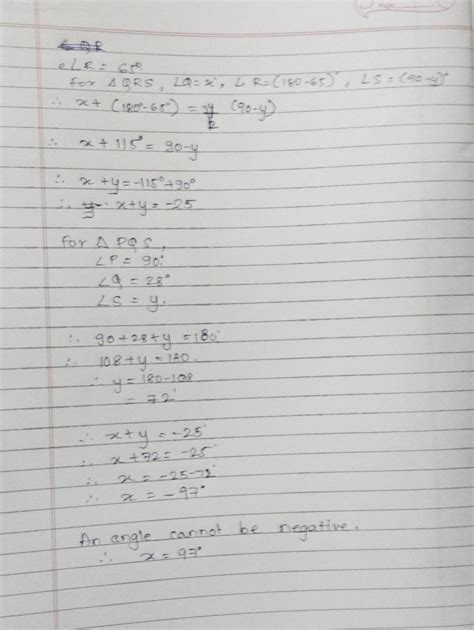 e∠R = 65°
for △QRS, ∠Q = x°, ∠R = (180-65)°, ∠S = (90-y)°
∴ x + (180°-65°) = (90-y)
∴ x + 115° = 90-y
∴ x + y = -115° + 90°
∴ x + y = -25
for △ PQS,
∠P = 90°
∠Q = 28°
∠S = y.
∴ 90 + 28 + y = 180°
∴ 108 + y = 180.
∴ y = 180-108
= 72°
∴ x + y = -25°
∴ x + 72 = -25°
∴ x = -25-72°
∴ x = -97°
An angle cannot be negative.
∴ x = 97°